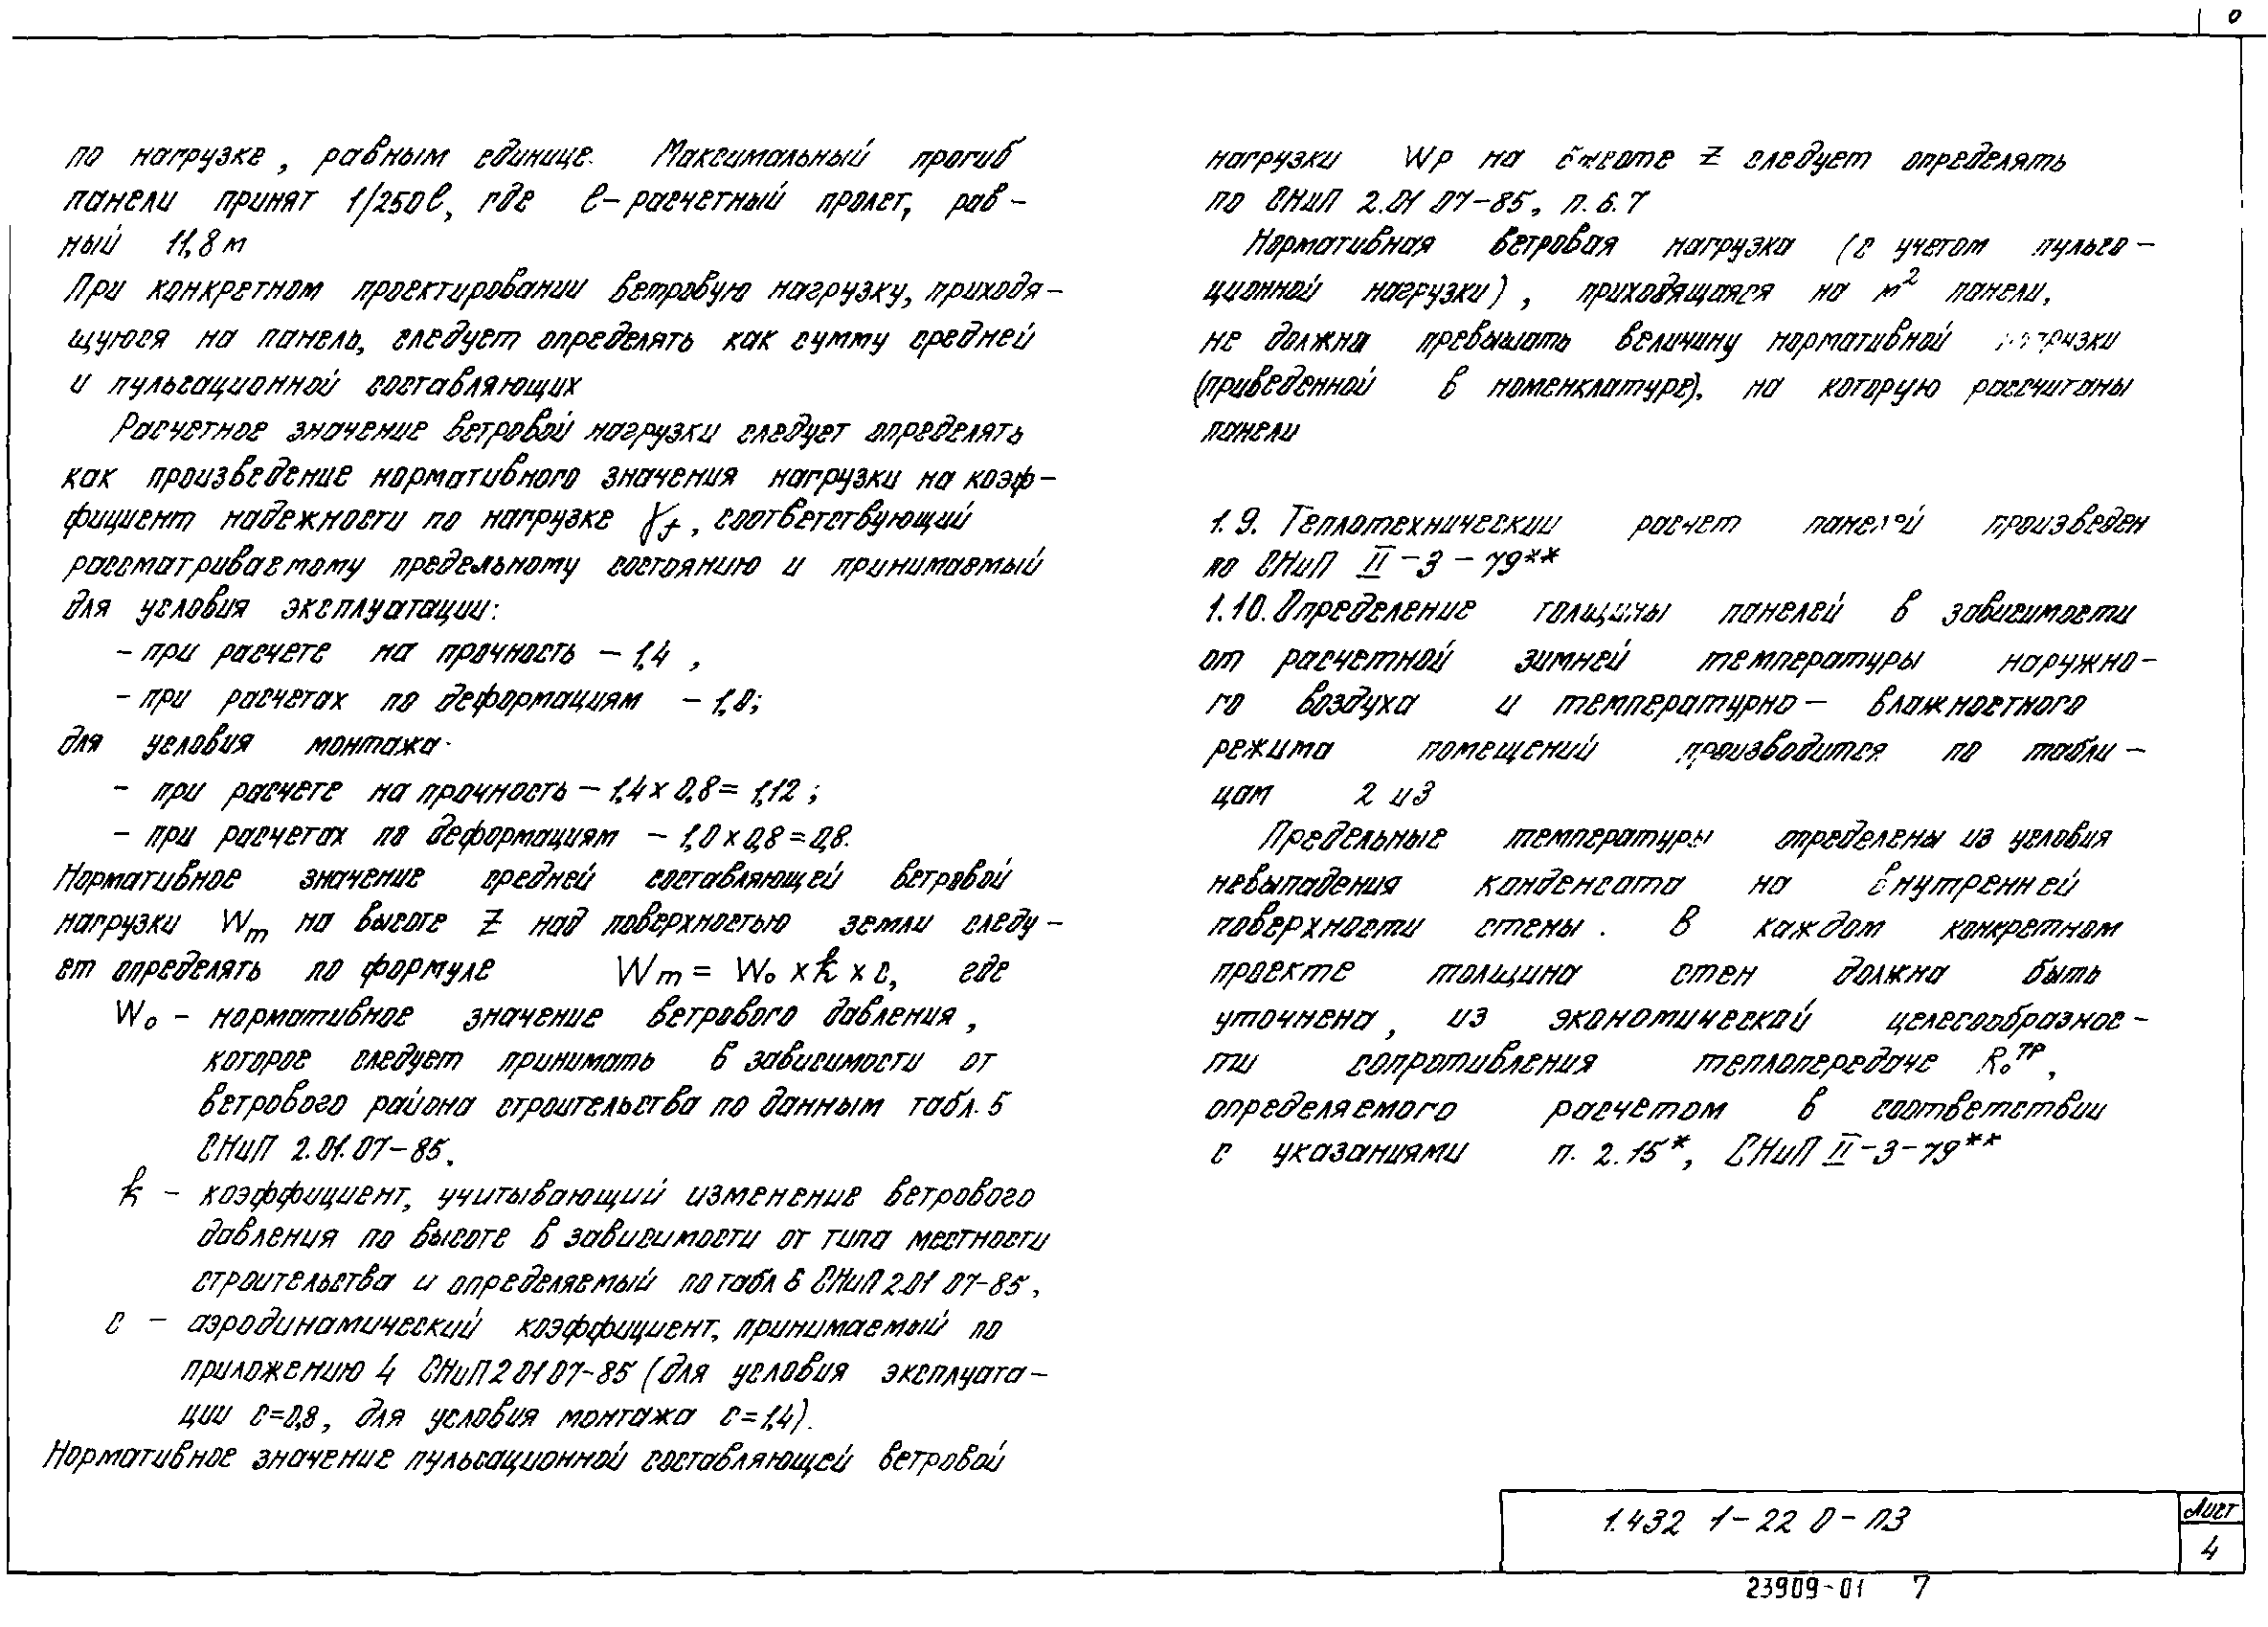 0
по нагрузке, равным единице. Максимальный прогиб
панели принят 1/250ℓ, где ℓ-расчетный пролет, рав-
ный 11,8 м
При конкретном проектировании ветровую нагрузку, приходя-
щуюся на панель, следует определять как сумму средней
и пульсационной составляющих
Расчетное значение ветровой нагрузки следует определять
как произведение нормативного значения нагрузки на коэф-
фициент надежности по нагрузке γf, соответствующий
рассматриваемому предельному состоянию и принимаемый
для условия эксплуатации:
- при расчете на прочность - 1,4,
- при расчетах по деформациям - 1,0;
для условия монтажа·
- при расчете на прочность - 1,4 x 0,8 = 1,12;
- при расчетах по деформациям - 1,0 x 0,8 = 0,8.
Нормативное значение средней составляющей ветровой
нагрузки Wm на высоте Z над поверхностью земли следу-
ет определять по формуле Wm = W₀ x k x c, где
W₀ - нормативное значение ветрового давления,
которое следует принимать в зависимости от
ветрового района строительства по данным табл. 5
СНиП 2.01.07-85.
k - коэффициент, учитывающий изменение ветрового
давления по высоте в зависимости от типа местности
строительства и определяемый по табл 6 СНиП 2.01 07-85,
c - аэродинамический коэффициент, принимаемый по
приложению 4 СНиП 2 01 07-85 (для условия эксплуата-
ции c=0,8, для условия монтажа c=1,4).
Нормативное значение пульсационной составляющей ветровой
нагрузки Wp на высоте Z следует определять
по СНиП 2.01 07-85, п. 6.7
Нормативная ветровая нагрузка (с учетом пульса-
ционной нагрузки), приходящаяся на м² панели,
не должна превышать величину нормативной нагрузки
(приведенной в номенклатуре), на которую рассчитаны
панели
1.9. Теплотехнический расчет панелей произведен
по СНиП II-3-79**
1.10. Определение толщины панелей в зависимости
от расчетной зимней температуры наружно-
го воздуха и температурно- влажностного
режима помещений производится по табли-
цам 2 и 3
Предельные температуры определены из условия
невыпадения конденсата на внутренней
поверхности стены. В каждом конкретном
проекте толщина стен должна быть
уточнена, из экономической целесообразнос-
ти сопротивления теплопередаче R₀ᵀᴾ,
определяемого расчетом в соответствии
с указаниями п. 2.15*, СНиП II-3-79**
1.432 1-22 0-ПЗ
Лист
4
23909-01 7